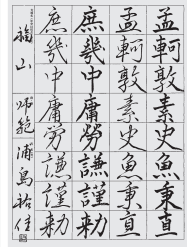 孟軻敦素史魚秉直
孟軻敦素史魚秉直
庶幾中庸勞謙謹勅
庶幾中庸勞謙謹勅
福山 師範 浦島祐佳